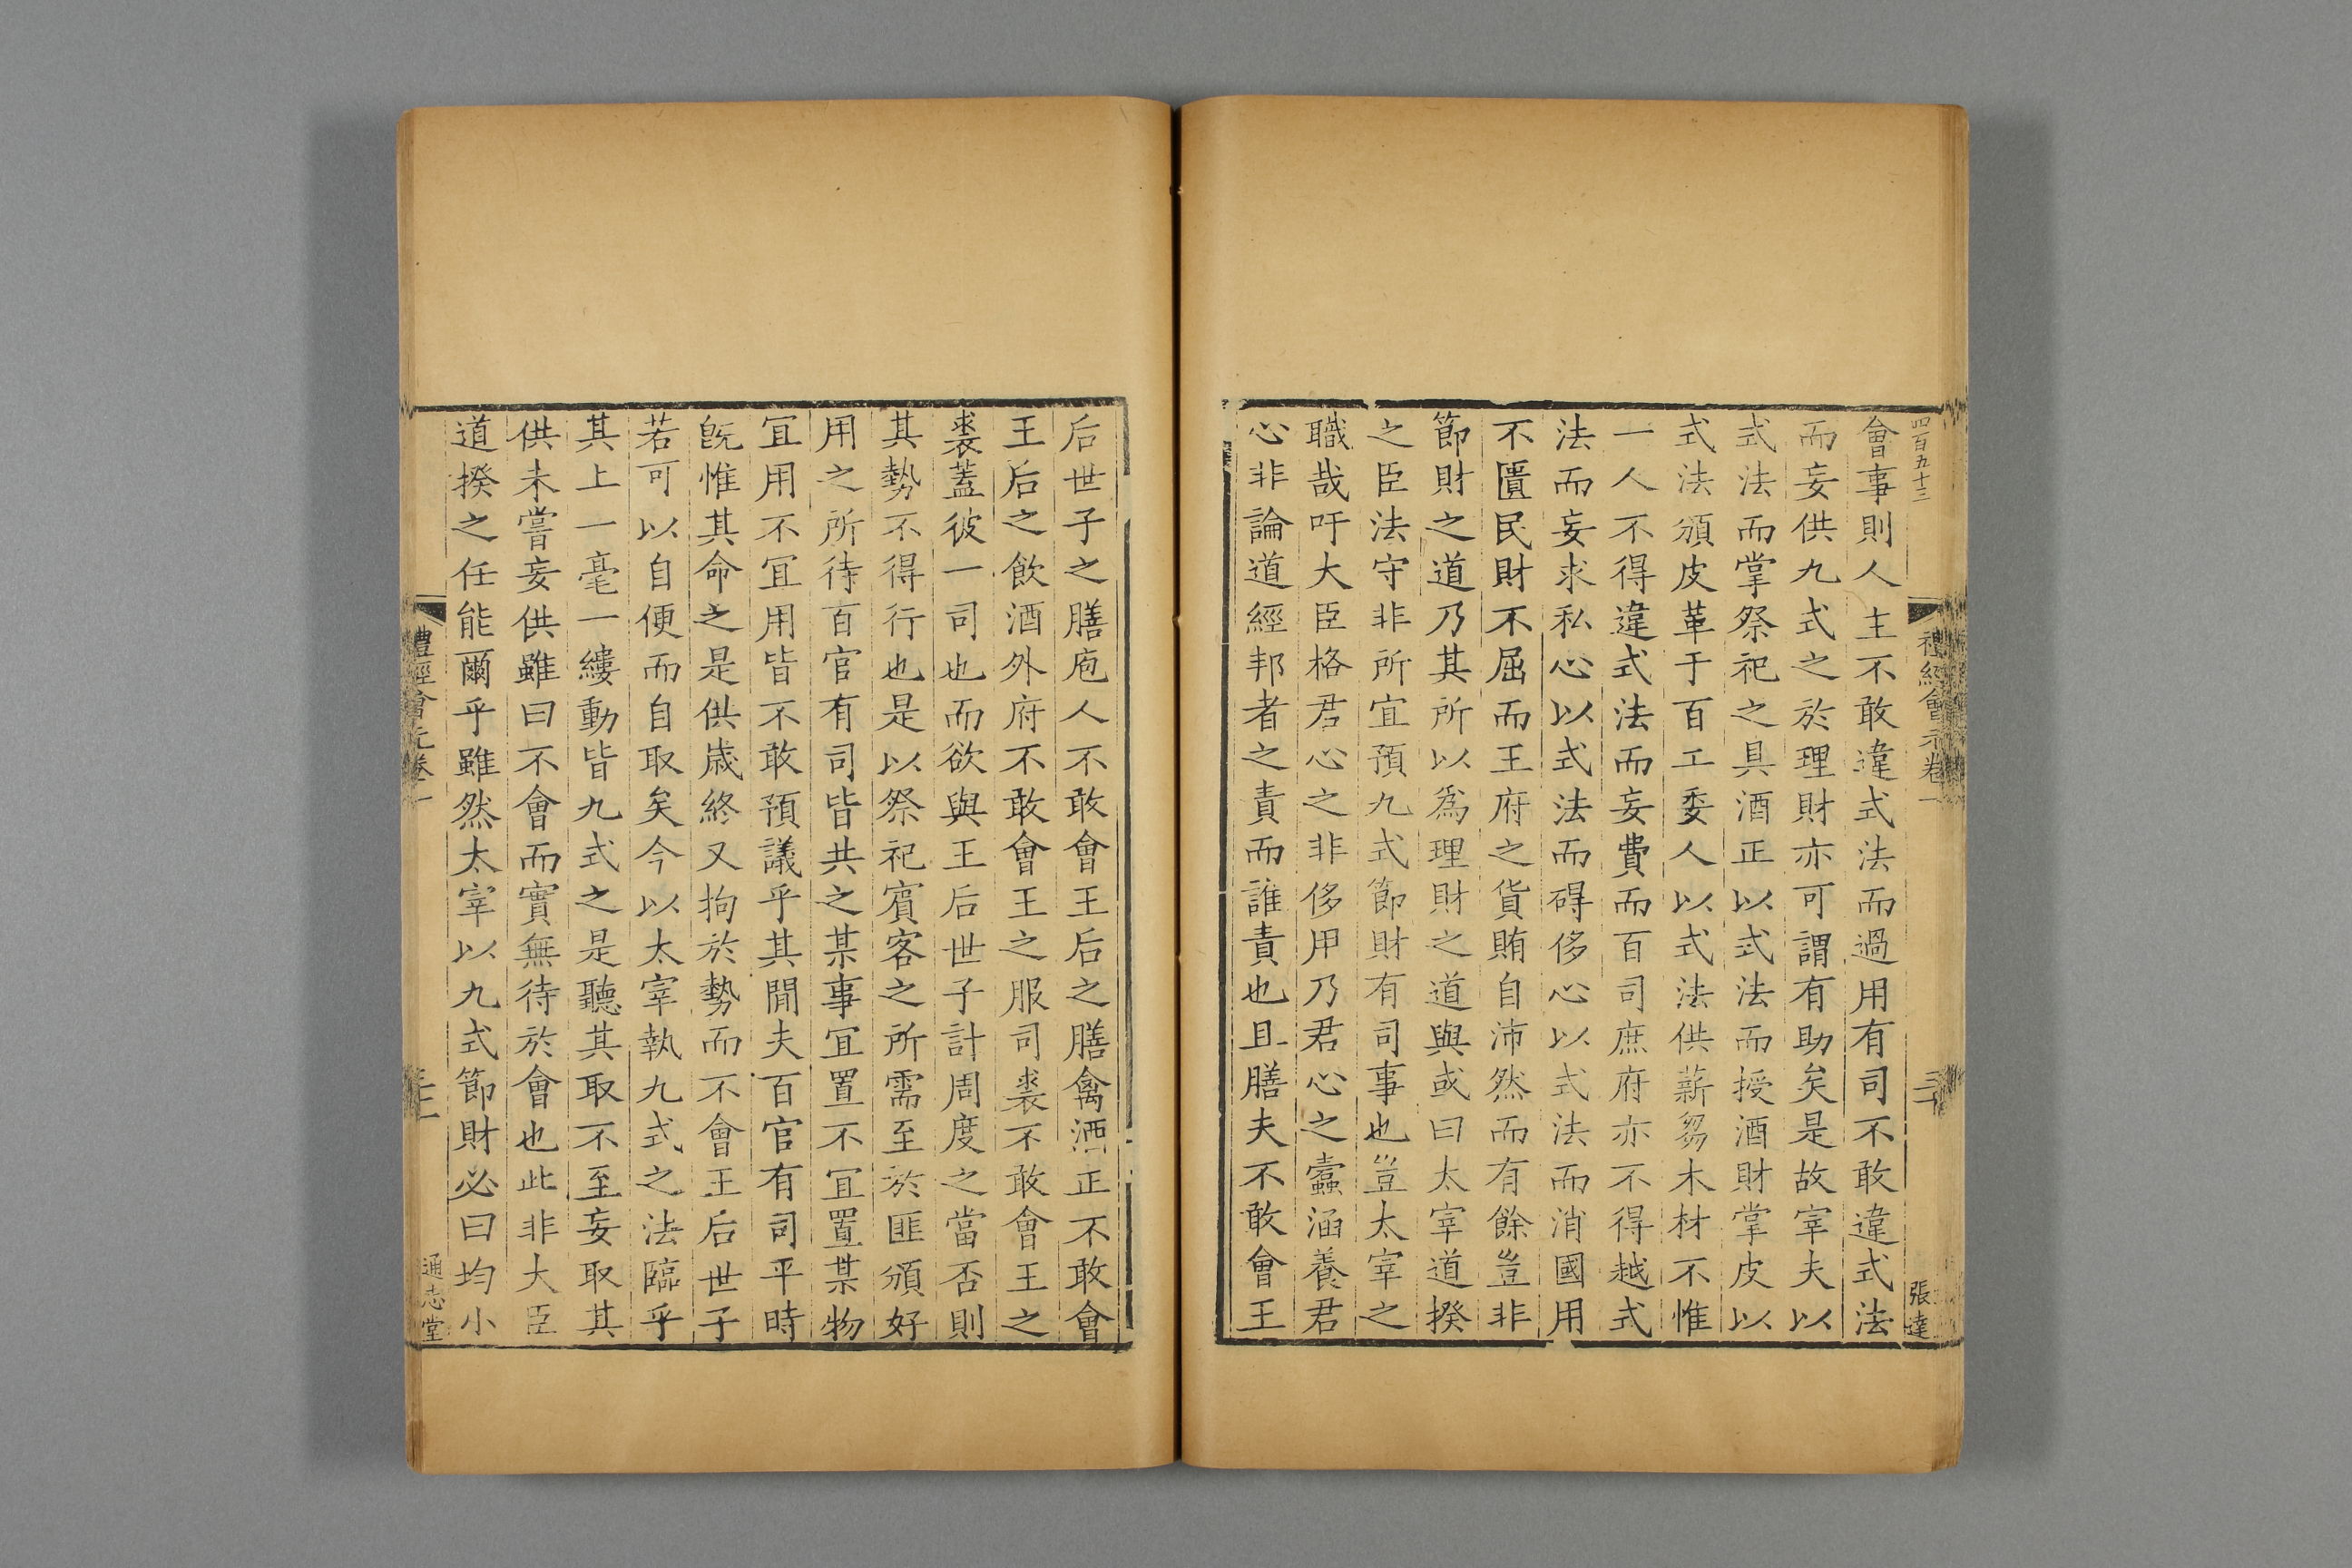 四百五十三
禮經會元卷一
張達
會事則人主不敢違式法而過用有司不敢違式法
而妄供九式之於理財亦可謂有助矣是故宰夫以
式法而掌祭祀之具酒正以式法而授酒財掌皮以
式法頒皮革于百工委人以式法供薪芻木材不惟
一人不得違式法而妄費而百司庶府亦不得越式
法而妄求私心以式法而碍侈心以式法而消國用
不匱民財不屈而王府之貨賄自沛然而有餘豈非
節財之道乃其所以爲理財之道與或曰太宰道揆
之臣法守非所宜預九式節財有司事也豈太宰之
職哉吁大臣格君心之非侈用乃君心之蠹涵養君
心非論道經邦者之責而誰責也且膳夫不敢會王
后世子之膳庖人不敢會王后之膳禽酒正不敢會
王后之飲酒外府不敢會王之服司裘不敢會王之
裘蓋彼一司也而欲與王后世子計周度之當否則
其勢不得行也是以祭祀賓客之所需至於匪頒好
用之所待百官有司皆共之某事宜置不宜置某物
宜用不宜用皆不敢預議乎其間夫百官有司平時
旣惟其命之是供歲終又拘於勢而不會王后世子
若可以自便而自取矣今以太宰執九式之法臨乎
其上一毫一縷動皆九式之是聽其取不至妄取其
供未嘗妄供雖曰不會而實無待於會也此非大臣
道揆之任能爾乎雖然太宰以九式節財必曰均小
禮經會元卷一
通志堂